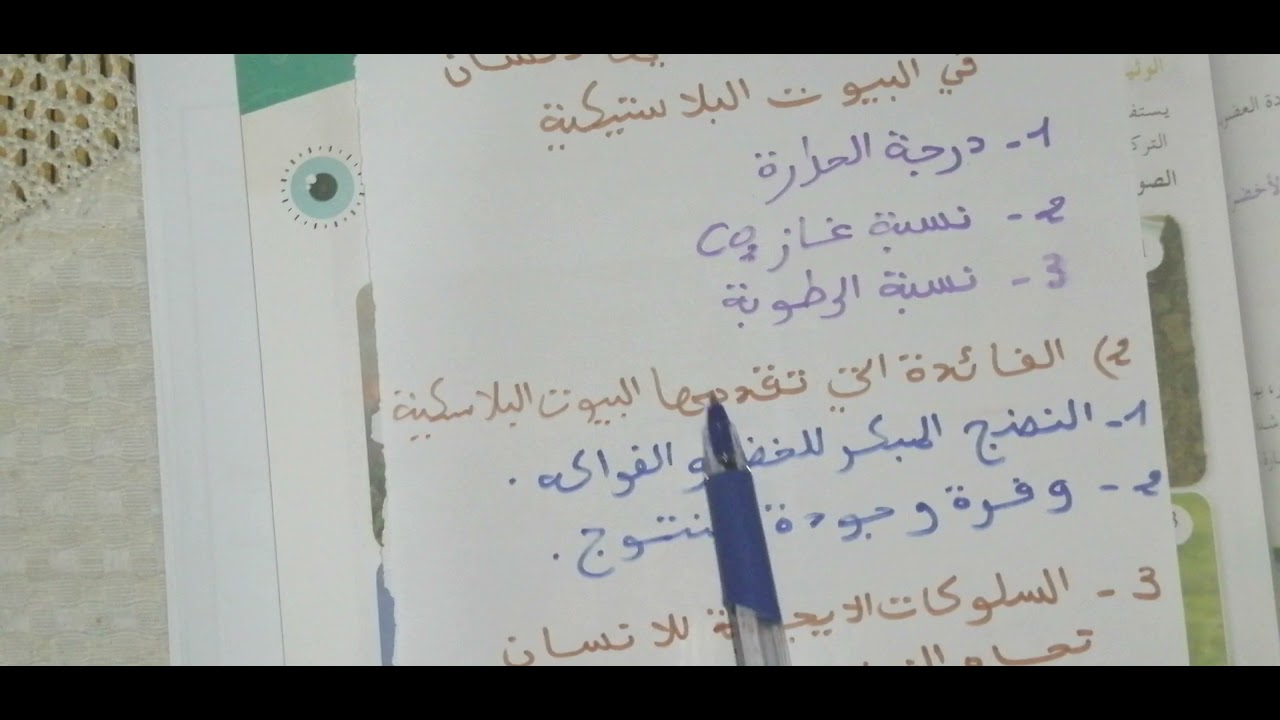 في البيوت البلاستيكية
1- درجة الحرارة
2- نسبة غاز CO2
3- نسبة الرطوبة
2) الفائدة التي تقدمها البيوت البلاسكية
1- النضج المبكر للخضر و الفواكه .
2- وفرة وجودة
3- السلوكات الايجابية للانسان
الصو
يستف